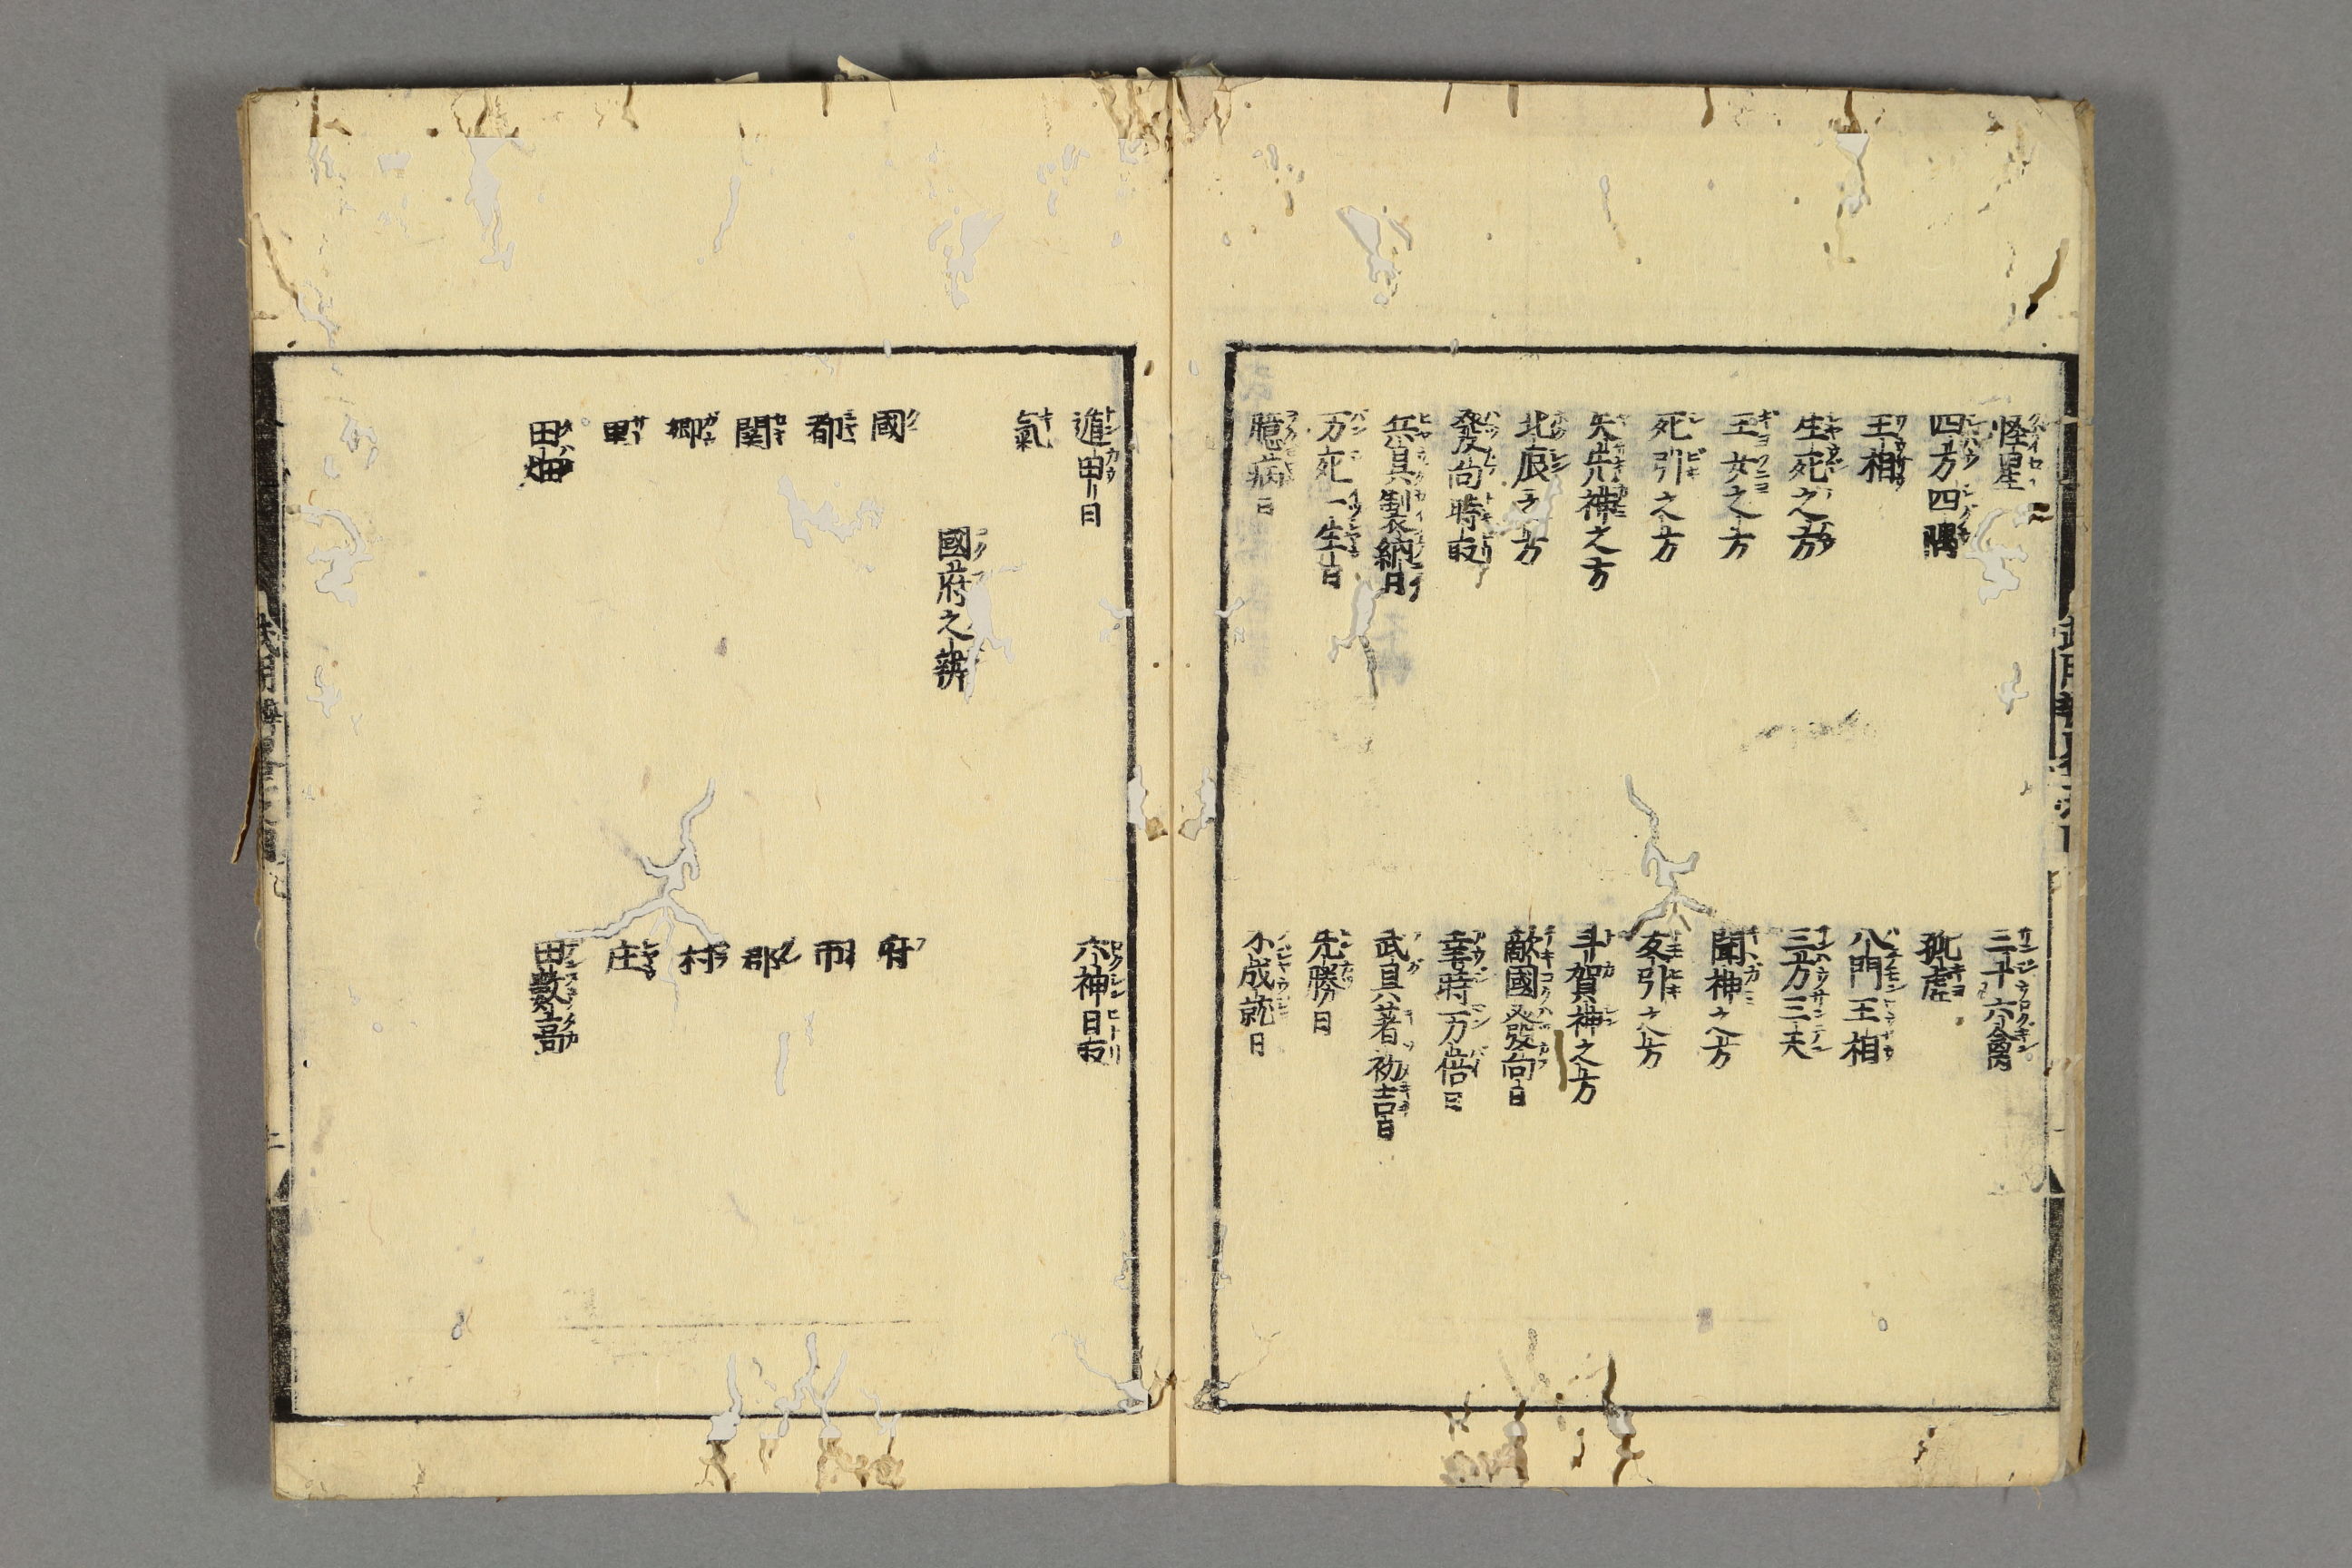 怪星
三十六禽
四方四隅
孤虚
王相
八門王相
生死之方
三方三天
玉女之方
聞神之方
死引之方
友引之方
矢先神之方
斗賀神之方
北辰之方
敵國發向日
發向時取
幸時万倍日
兵具製納日
武具著初吉日
万死一生日
先勝日
臆病日
不成就日
遁甲日
六神日取
氣
國府之辨
國
府
都
市
関
郡
郷
村
里
庄
田畑
田數高